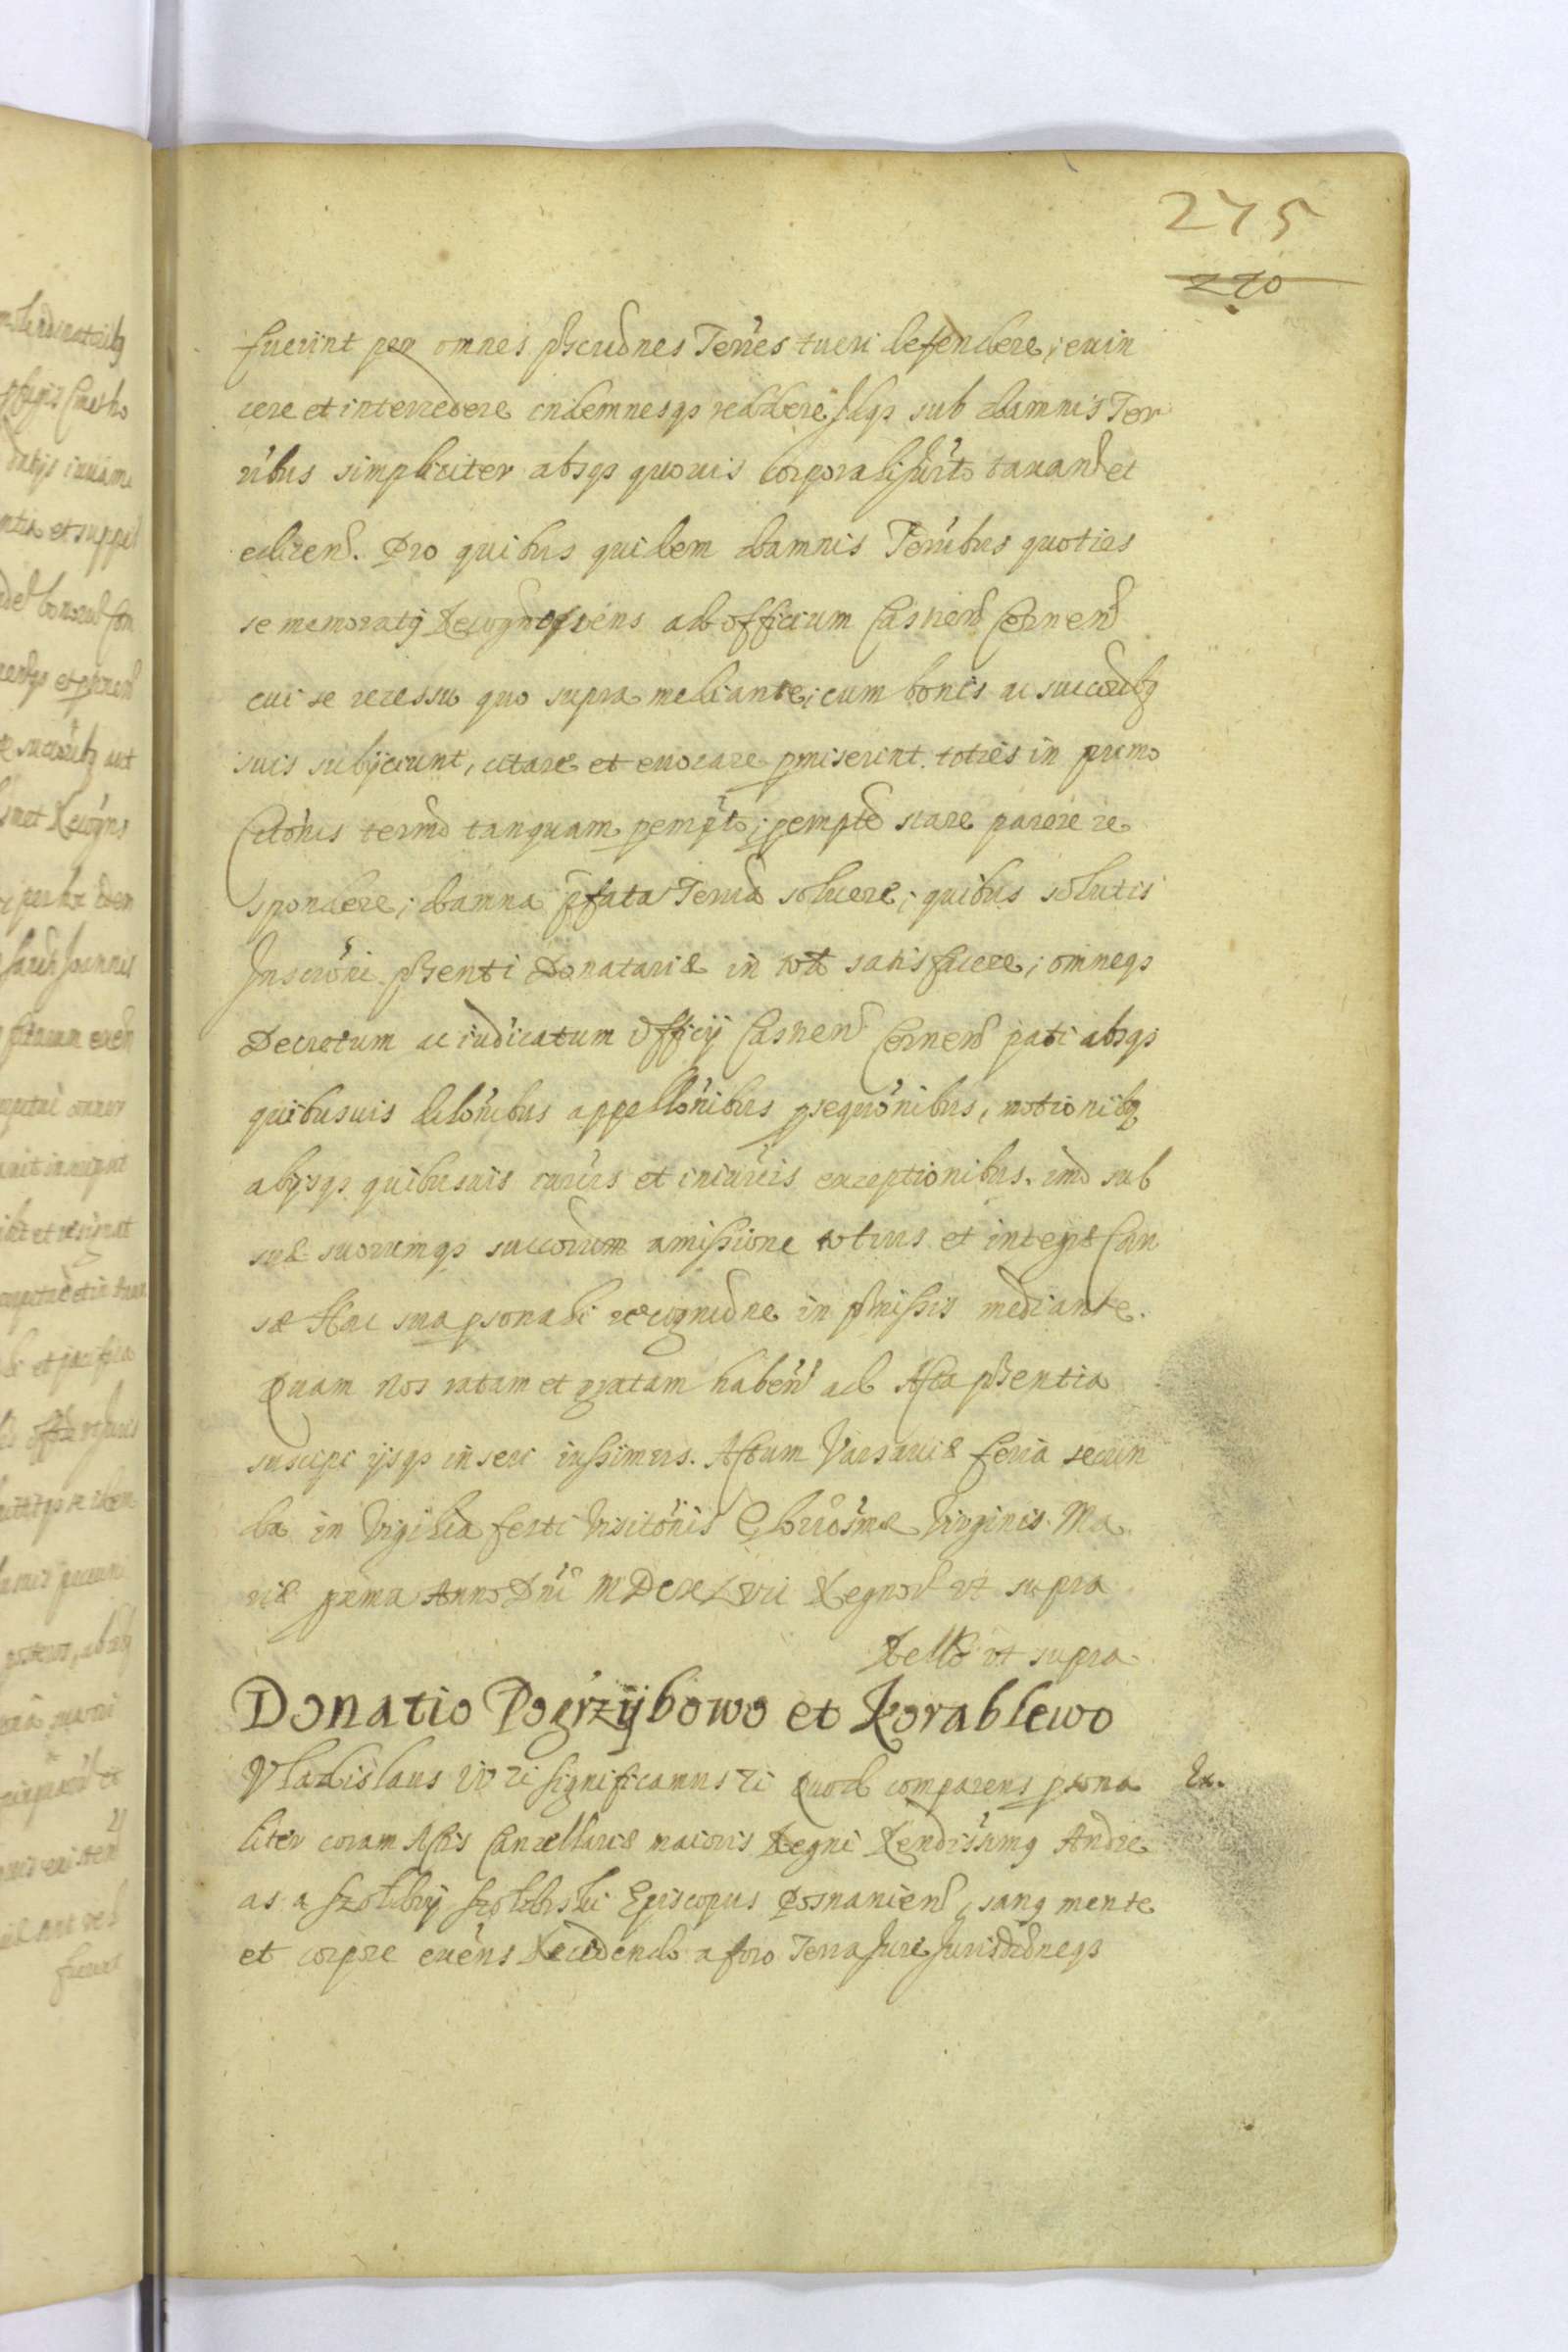 275
270
fuerint per omnes pscudnes Terres tueri defendere, euin
cere et intercedere indemnesqs reddere Idqs sub damnis Ter
ribus simpliciter absqs quouis corporali Jurto taxand et
ediend. Pro quibus quidem damnis Terribus quoties
se memoratij Recogn ad officium Casnen Cernen
cui se recessu quo supra mediante, cum bonis ac succoribz
suis subijciunt, citare et euocare pmiserint toties in primo
Citonis termo tanquam pempto, pempto stare parere re
spondere, damna pfata Terria soluere, quibus solutis
Inscroni psenti Donatariæ in toto satisfacere, omneqs
Decretum ac iudicatum Officij Casnen Cernen pati absqs
quibusuis dilonibus appellonibus psequonibus, motionibz
alijsqs quibusuis iuris et iniuriis exceptionibus. imo sub
suæ suorumqs succorum amissione totius et integræ Cau
sæ Hac sua psonali recognidne in pmissis mediante.
Quam nos ratam et gratam haben ad Acta psentia
suscipi ijsqs inseri iussimus. Actum Varsauiæ feria secun
da in Vigilia festi Visitonis Virginis Ma
riæ prima Anno Dni MDCXLVII Regnor vt supra
Rello vt supra
Donatio Pogrzybowo et Korablewo
Vladislaus IV ri significamus ri Quod comparens psona Ex.
liter coram Actis Cancellariæ maioris Regni Rendissimq Andre
as a Szoldry Szoldrski Episcopus Posnanien, sanq mente
et corpore exens Recedendo a foro Terra Jure Jurisdidneqs